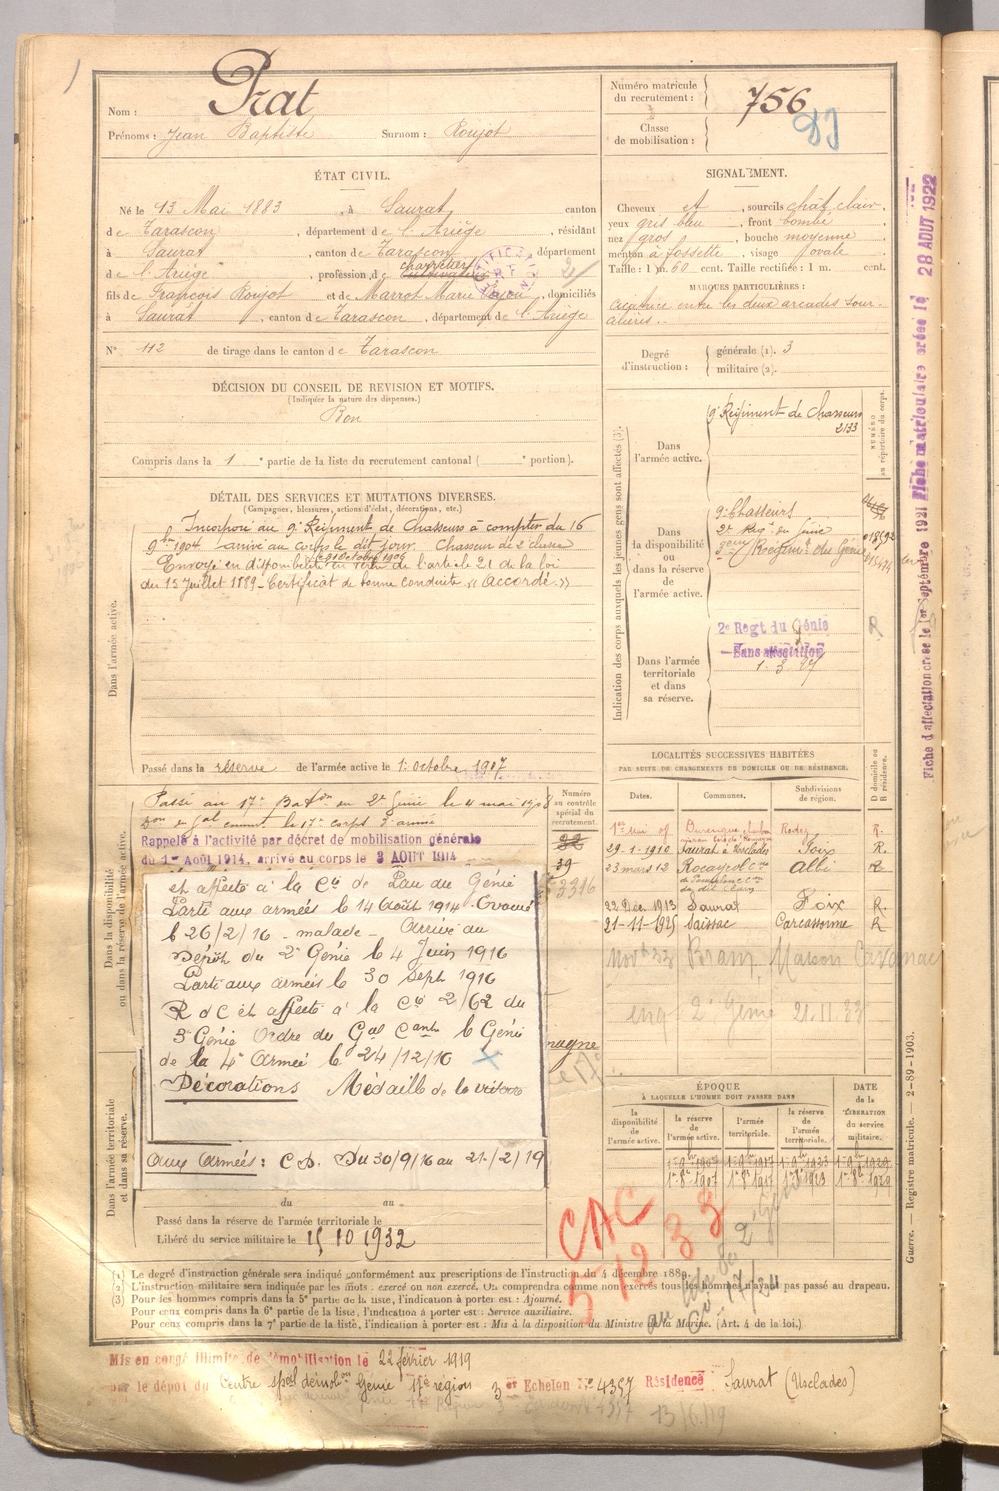 Prat
Nom :
Prénoms : Jean Baptiste Surnom : Roujot
Numéro matricule du recrutement : 756
Classe de mobilisation :
ÉTAT CIVIL.
Né le 13 Mai 1883, à Saurat, canton
de Tarascon, département de l'Ariège, résidant
à Saurat, canton de Tarascon, département
de l'Ariège, profession de cultivateur charretier
fils de François Roujot et de Marrot Marie, domiciliés
à Saurat, canton de Tarascon, département de l'Ariège
N° 112 de tirage dans le canton de Tarascon
SIGNALEMENT.
Cheveux et, sourcils chat clair,
yeux gris bleu, front bombé
nez gros, bouche moyenne
menton à fossette, visage ovale
Taille : 1 m. 60 cent. Taille rectifiée : 1 m. cent.
MARQUES PARTICULIÈRES :
Cicatrice entre les deux arcades sour-
cilières..
Degré d'instruction : générale (1). 3
militaire (2).
DÉCISION DU CONSEIL DE REVISION ET MOTIFS.
(Indiquer la nature des dispenses.)
Bon
Compris dans la 1e partie de la liste du recrutement cantonal ( e portion).
DÉTAIL DES SERVICES ET MUTATIONS DIVERSES.
(Campagnes, blessures, actions d'éclat, décorations, etc.)
Dans l'armée active.
Incorporé au 9e Régiment de Chasseurs à compter du 16
9bre 1904 arrivé au corps le dit jour. Chasseur de 2e classe
Envoyé en disponibilité en vertu de l'article 21 de la loi
du 15 Juillet 1889 - Certificat de bonne conduite « Accordé. »
Passé dans la réserve de l'armée active le 1er octobre 1907
Indication des corps auxquels les jeunes gens sont affectés (3).
NUMÉRO au répertoire du corps.
Dans l'armée active.
9e Régiment de Chasseurs
2133
Dans la disponibilité ou dans la réserve de l'armée active.
9e Chasseurs
2e Rég. du Génie
Régiment du Génie
Dans l'armée territoriale et dans sa réserve.
2e Regt du Génie
Sans affectation
1. 3. 27
R
Fiche d'affectation créée le 1er Septembre 1921 Fiche matriculaire créée le 28 AOUT 1922
Dans la disponibilité ou dans la réserve de l'armée active.
Numéro au contrôle spécial du recrutement.
Passé au 17e Baton du 2e Génie le 4 mai 1908
Rappelé à l'activité par décret de mobilisation générale
du 1er Août 1914, arrivé au corps le 3 AOUT 1914
39
3316
et affecté à la Cie de Pau du Génie
Parti aux armées le 14 Août 1914. Evacué
le 26/2/16 - malade - Arrivé au
Dépôt du 2e Génie le 4 Juin 1916
Parti aux armées le 30 Sept 1916
R d C et affecté à la Cie 2/62 du
3e Génie Ordre du Gal Cant le Génie
de la 4e Armée le 24/12/16
Décorations Médaille de la victoire
Aux Armées : C.D. Du 30/9/16 au 21/2/19
Dans l'armée territoriale et dans sa réserve.
du au
Passé dans la réserve de l'armée territoriale le
Libéré du service militaire le 15 10 1932
LOCALITÉS SUCCESSIVES HABITÉES
PAR SUITE DE CHANGEMENTS DE DOMICILE OU DE RÉSIDENCE.
Dates. Communes. Subdivisions de région. D domicile ou R résidence.
Rodez R.
29-1-1910 Saurat à Usclades Foix R.
23 mars 12 Albi R
22 Déc. 1913 Saurat Foix R.
21-11-1925 Saissac Carcassonne R
Nov 33 Bram, Maison
2e Génie 21.11.33
ÉPOQUE
À LAQUELLE L'HOMME DOIT PASSER DANS
la disponibilité de l'armée active. la réserve de l'armée active. l'armée territoriale. la réserve de l'armée territoriale. DATE de la LIBÉRATION du service militaire.
CAC
5 12 33
(1) Le degré d'instruction générale sera indiqué conformément aux prescriptions de l'instruction du 4 décembre 1889.
(2) L'instruction militaire sera indiquée par les mots : exercé ou non exercé. On comprendra comme non exercés tous les hommes n'ayant pas passé au drapeau.
(3) Pour les hommes compris dans la 5e partie de la liste, l'indication à porter est : Ajourné.
Pour ceux compris dans la 6e partie de la liste, l'indication à porter est : Service auxiliaire.
Pour ceux compris dans la 7e partie de la liste, l'indication à porter est : Mis à la disposition du Ministre de la Marine. (Art. 4 de la loi.)
Guerre. — Registre matricule. — 2-89-1903.
Mis en congé illimité de démobilisation le 22 février 1919
par le dépôt du Centre spécl démobon Génie 17e région 3er Echelon No 4357 Résidence Saurat (Usclades)
13/6/19